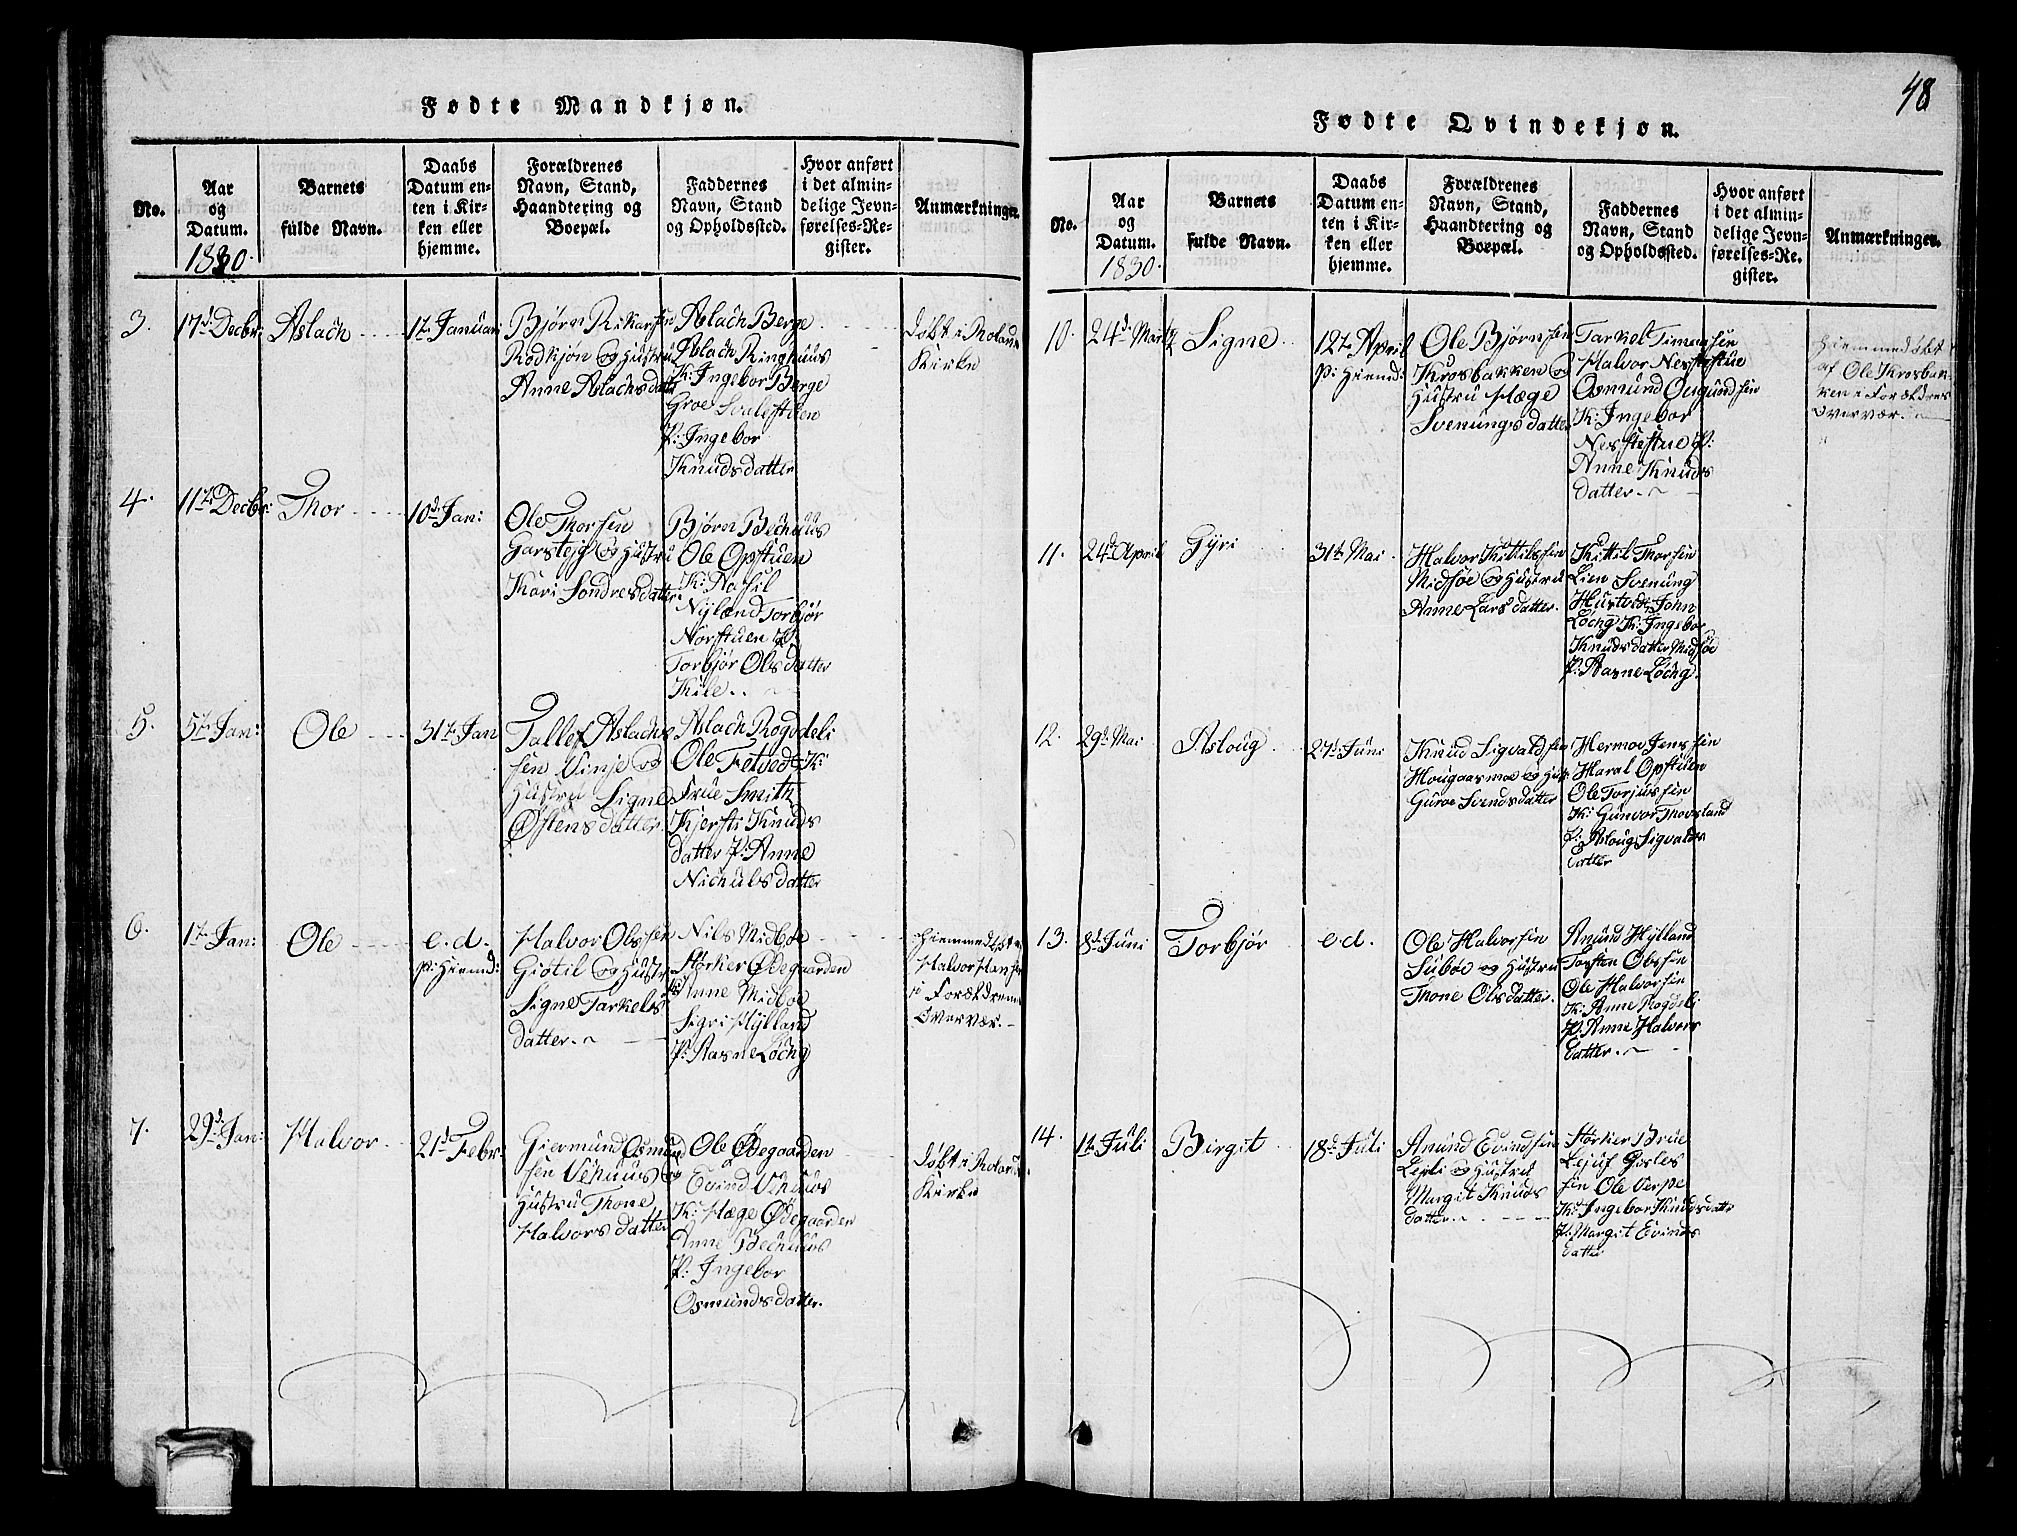 Fødte Mandkjøn.
No.
Aar
og
Datum.
1830.
Barnets
fulde Navn.
Daabs
Datum en-
ten i Kir-
ken eller
hjemme.
Forældrenes
Navn, Stand,
Haandtering og
Boepæl.
Faddernes
Navn, Stand
og Opholdssted.
Hvor anført
i det almin-
delige Jevn-
førelses-Re-
gister.
Anmærkninger.
3.
17d Decbr:
Aslach
17t Januari
Bjørn Rikarsen
Rodkjøn og Hustru
Anne Aslachsdatt
Aslach Berge
Aslach Ringhuus
K: Ingebor Berge
Groe Svalestuen
P: Ingebor
Knudsdatter
døbt i Moland
Kirke
4.
11t Decbr:
Thor
10d Jan:
Ole Thorsen
Garsteig og Hustru
Kari Sondresdatter
Bjørn Bechuus
Ole Opstuen
K: Aasil
Nyland Torbjør
Norstuen P:
Torbjør Olsdatter
Kile.
5.
5t Jan:
Ole
31t Jan
Tallef Aslach
sen Vinje og
Hustru Signe
Østensdatter
Aslach Rogvdeli
Ole Fetved K:
Frue Smith
Kjersti Knuds
datter P: Anne
Nichulsdatter
6.
1t Jan:
Ole
e.d.
P: Hiemd:
Halvor Olssen
Giøtil og Hustr
Signe Tarkels
datter.
Nils Midbøe
Størker Ødegaarden
K: Anne Midboe
Sigri Hylland
P: Aasne Løchg
Hiemmedøbt
Halvor Hansen
i Forældrenes
Overvær.
7.
29d Jan:
Halvor
21d Febr:
Giermund Osmund
sen Vehuus og
Hustru Thone
Halvorsdatter
Ole Ødegaarden
Evind Vehuus
K: Hæge Ødegaarden
Anne Bechuus
P: Ingebor
Osmundsdatter.
døbt i Moland
Kirke
48
Fødte Qvindekjøn.
No.
Aar
og
Datum.
1830.
Barnets
fulde Navn.
Daabs
Datum en-
ten i Kir-
ken eller
hjemme.
Forældrenes
Navn, Stand,
Haandtering og
Boepæl.
Faddernes
Navn, Stand
og Opholdssted.
Hvor anført
i det almin-
delige Jevn-
førelses-Re-
gister.
Anmærkninger.
10.
24d Marty
Signe
12t April
P: Hiemd:
Ole Bjørnsen
Krosbakken og
Hustru Hæge
Svenungsdatter
Tarkel Timansen
Halvor Nerstestue
Osmund Ougundsen
K: Ingebor
Nerstestue P:
Anne Knuds
datter.
Hiemmedøbt
af Ole Krosbak-
ken i Forældres
Overvær.
11.
24d April
Gyri
31t Mai
Halvor Kittilsen
Midsøe og Hustru
Anne Larsdatter.
Kittil Thorsen
Lien Svenung
Hustvdt John
Løchg K: Ingebor
Knudsdatter Midsøe
P: Aasne Løchg.
12.
29d Mai
Asloug
27d Juni
Knud Sigvaldsen
Hougaasmoe og Hust
Guroe Svendsdatter
Hermov Jenssen
Haral Opstuen
Ole Torjussen
K: Gunvor Thovsland
P: Asloug Sigvalds
datter
13.
8d Juni
Torbjør
e.d.
Ole Halvorsen
Subøe og Hustru
Thone Olsdatter.
Amund Hylland
Torsten Olssen
Ole Halvorsen
K: Anne Rogdeli
P: Anne Halvors
datter.
14.
1t Juli
Birgit
18d Juli
Amund Evindsen
Lerli og Hustru
Margit Knuds
datter.
Størker Brue
Lejuf Gisles
sen Ole Verpe
K: Ingebor Knudsdatte
P: Margit Evinds
datter